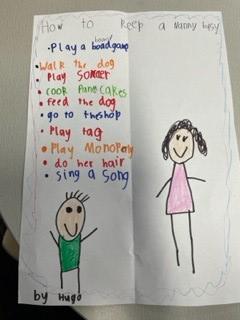 How to keep a nanny busy
• Play a boadgame
board
• Walk the dog
• Play Sommer
• cook Pancakes
• feed the dog
• go to theshop
• Play tag
• Play Monopoly
• do her hair
• Sing a song
by Hugo